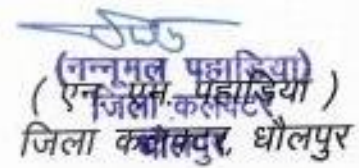 (नन्नूमल पहाड़िया)
( एन. एम. पहाड़िया )
जिला कलक्टर
जिला कलक्टर, धौलपुर
धौलपुर